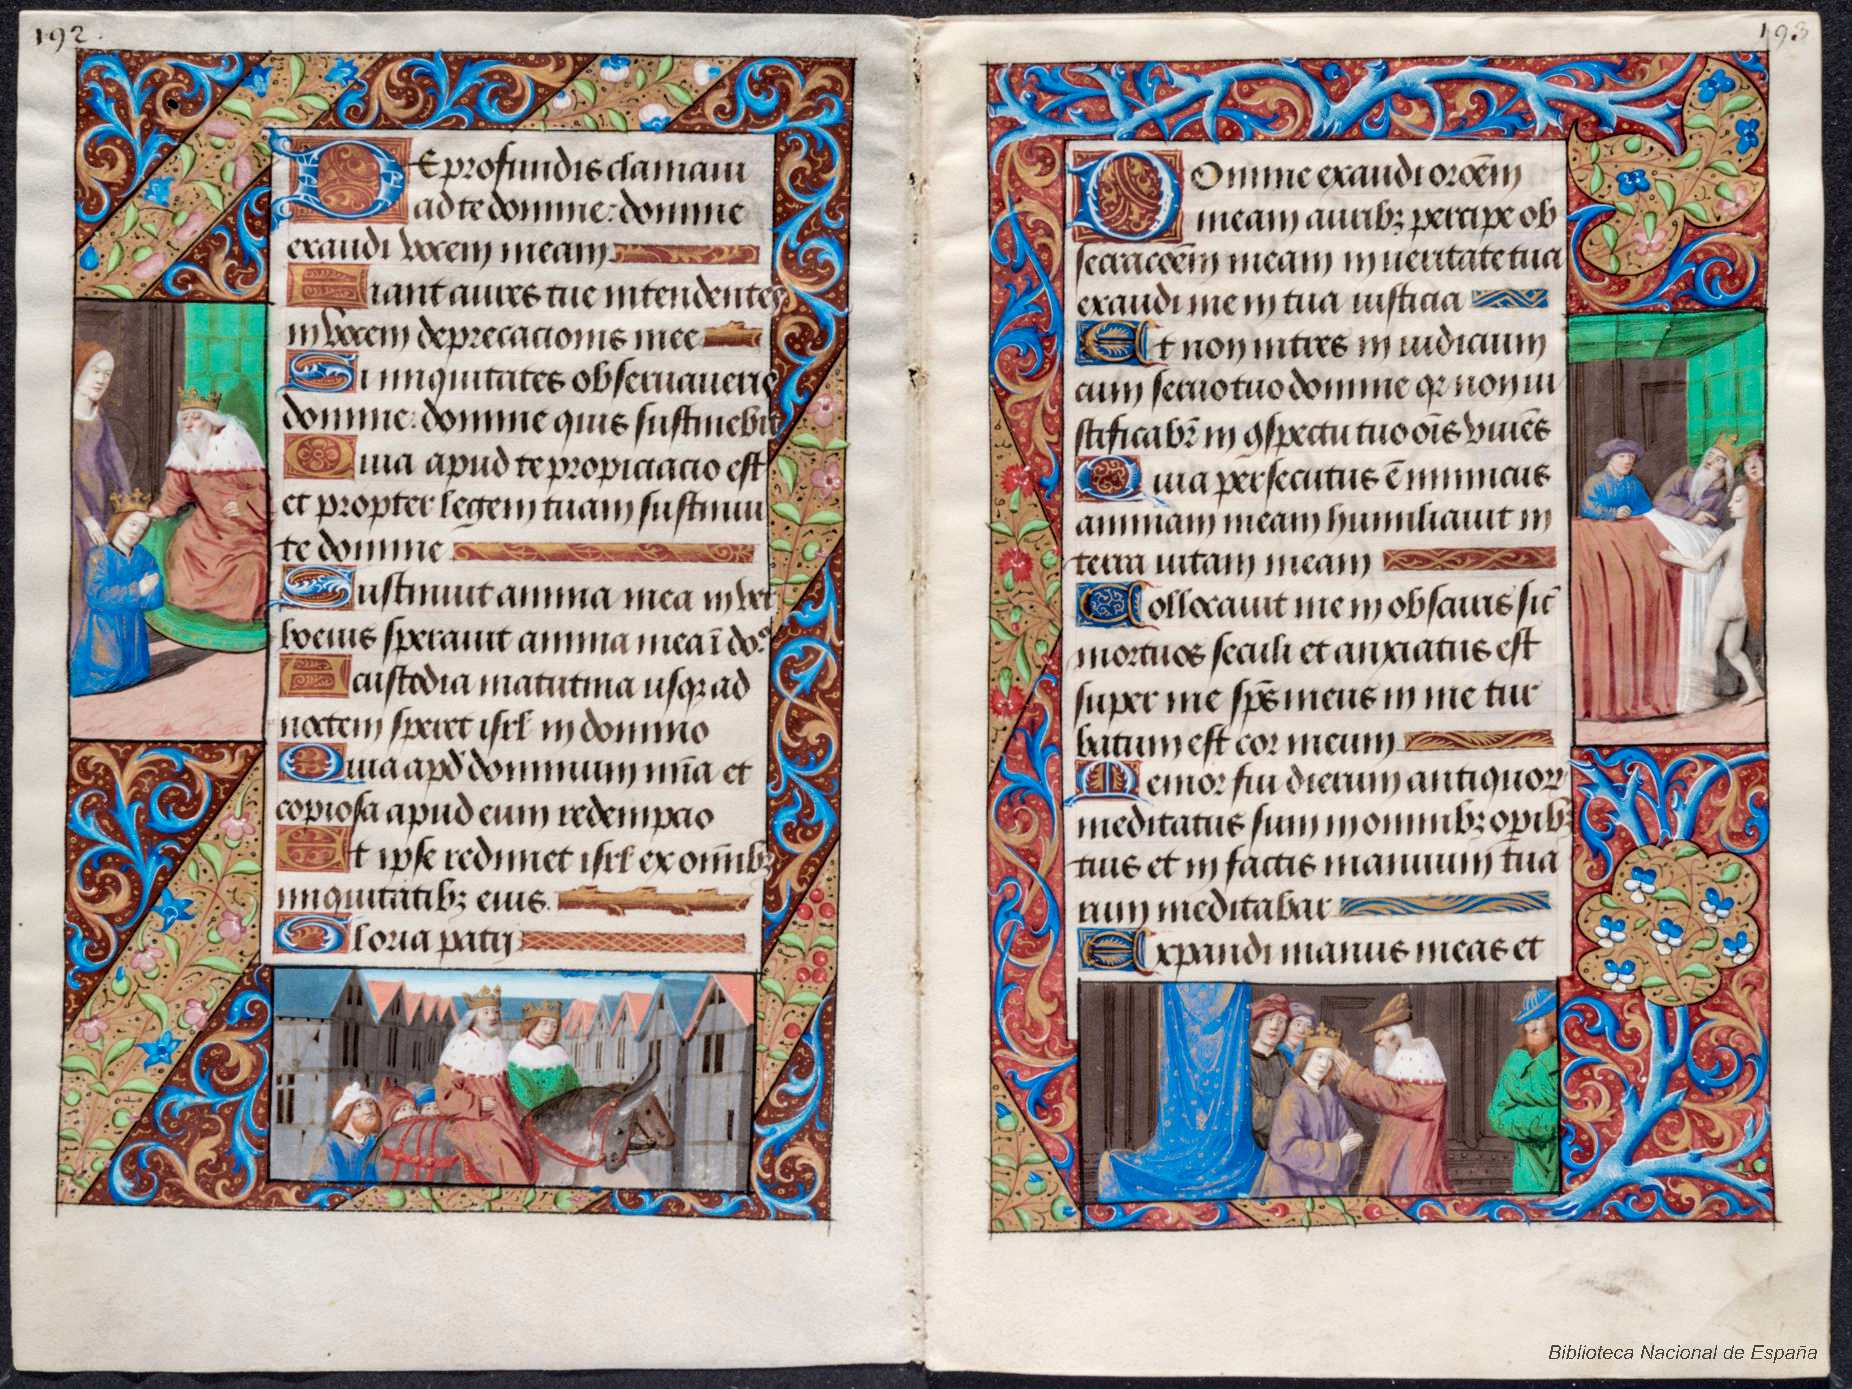 192.
De profundis clamaui
ad te domine: domine
exaudi vocem meam
Fiant aures tue intendentes
in vocem deprecacionis mee
Si iniquitates obseruaueris
domine: domine quis sustinebit
Quia apud te propiciacio est
et propter legem tuam sustinui
te domine
Sustinuit anima mea in ver
bo eius sperauit anima mea ī do.º
A custodia matutina usqꝫ ad
noctem speret isrł in domino
Quia apđ dominum mīa et
copiosa apud eum redempcio
Et ipse redimet isrł ex om̄ibꝫ
iniquitatibꝫ eius.
Gloria patrj
193
Domine exaudi oroēm
meam auribꝫ percipe ob
secracōem meam in ueritate tua
exaudi me in tua iusticia
Et non intres in iudicium
cum seruo tuo domine qꝛ non iu
stificabr̄ in ꝯspectu tuo oīs viuēs
Quia persecutus ē inimicus
animam meam humiliauit in
terra uitam meam
Collocauit me in obscuris sic̄
mortuos seculi et anxiatus est
super me sp̄s meus in me tur
batum est cor meum
Memor fui dierum antiquoꝝ
meditatus sum in omnibꝫ op̄ibꝫ
tuis et in factis manuum tua
rum meditabar
Expandi manus meas et
Biblioteca Nacional de España